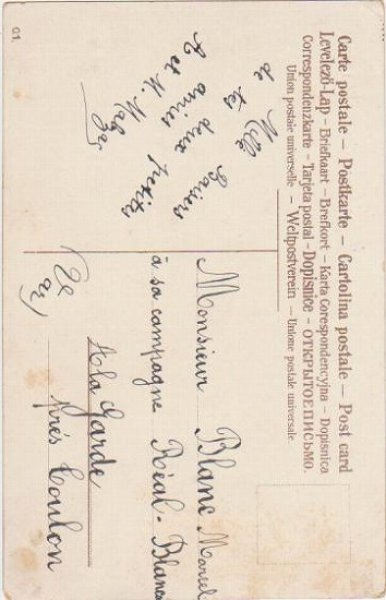 Carte postale – Postkarte – Cartolina postale – Post card
Levelező-Lap – Briefkaart – Brefkort – Karta Corespondencyjna – Dopisnica
Correspondenzkarte – Tarjeta postal – Dopisnice – ОТКРЫТОЕ ПИСЬМО.
Union postale universelle – Weltpostverein – Unione postale universale.
Mille Baisers
de tes deux petites
amies
et M.
Monsieur Blanc Marcel
à sa campagne Réal-Blanc
A la Garde
près Toulon
Var
91.